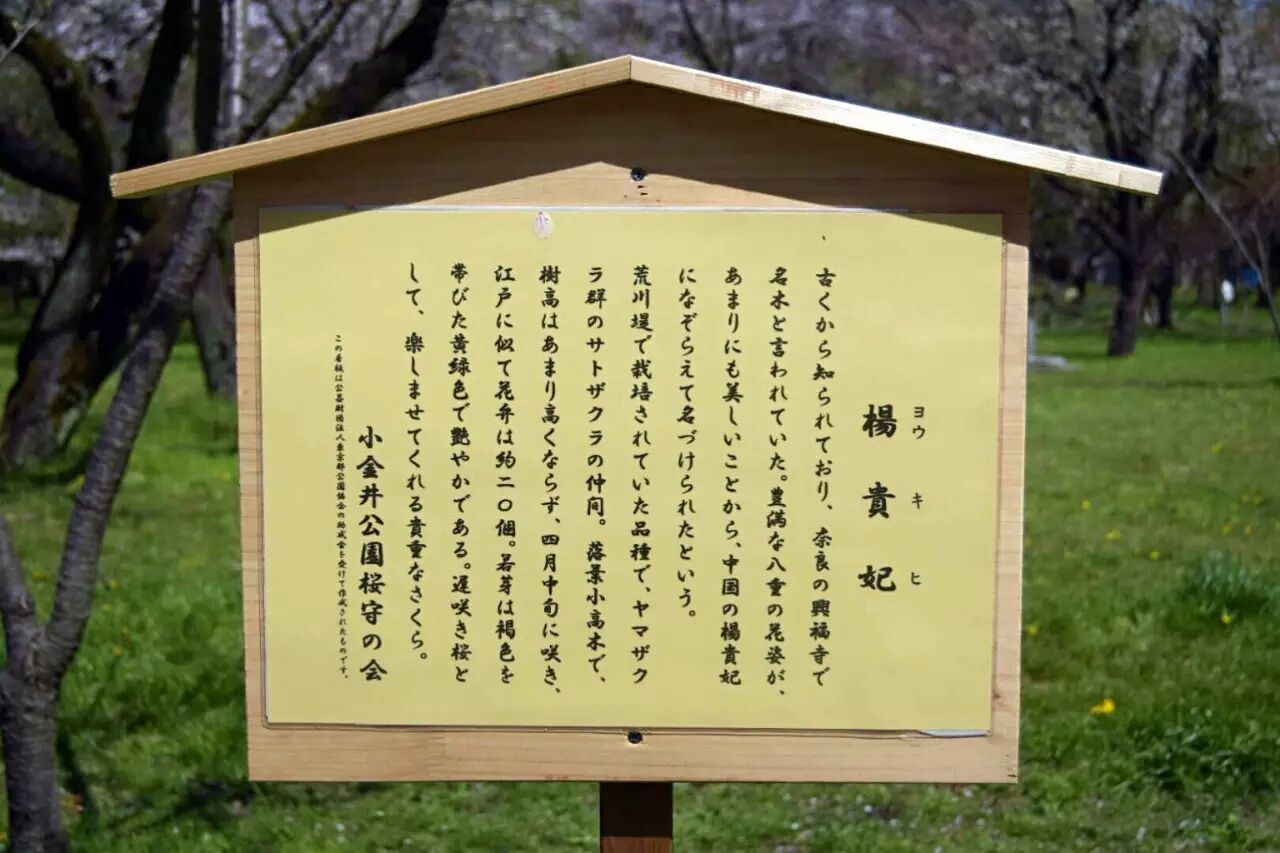 楊貴妃
ヨウ キ ヒ
古くから知られており、奈良の興福寺で
名木と言われていた。豊満な八重の花姿が、
あまりにも美しいことから、中国の楊貴妃
になぞらえて名づけられたという。
荒川堤で栽培されていた品種で、ヤマザク
ラ群のサトザクラの仲間。落葉小高木で、
樹高はあまり高くならず、四月中旬に咲き、
江戸に似て花弁は約二〇個。若芽は褐色を
帯びた黄緑色で艶やかである。遅咲き桜と
して、楽しませてくれる貴重なさくら。
小金井公園桜守の会
この看板は公益財団法人東京都公園協会の助成金を受けて作成されたものです。